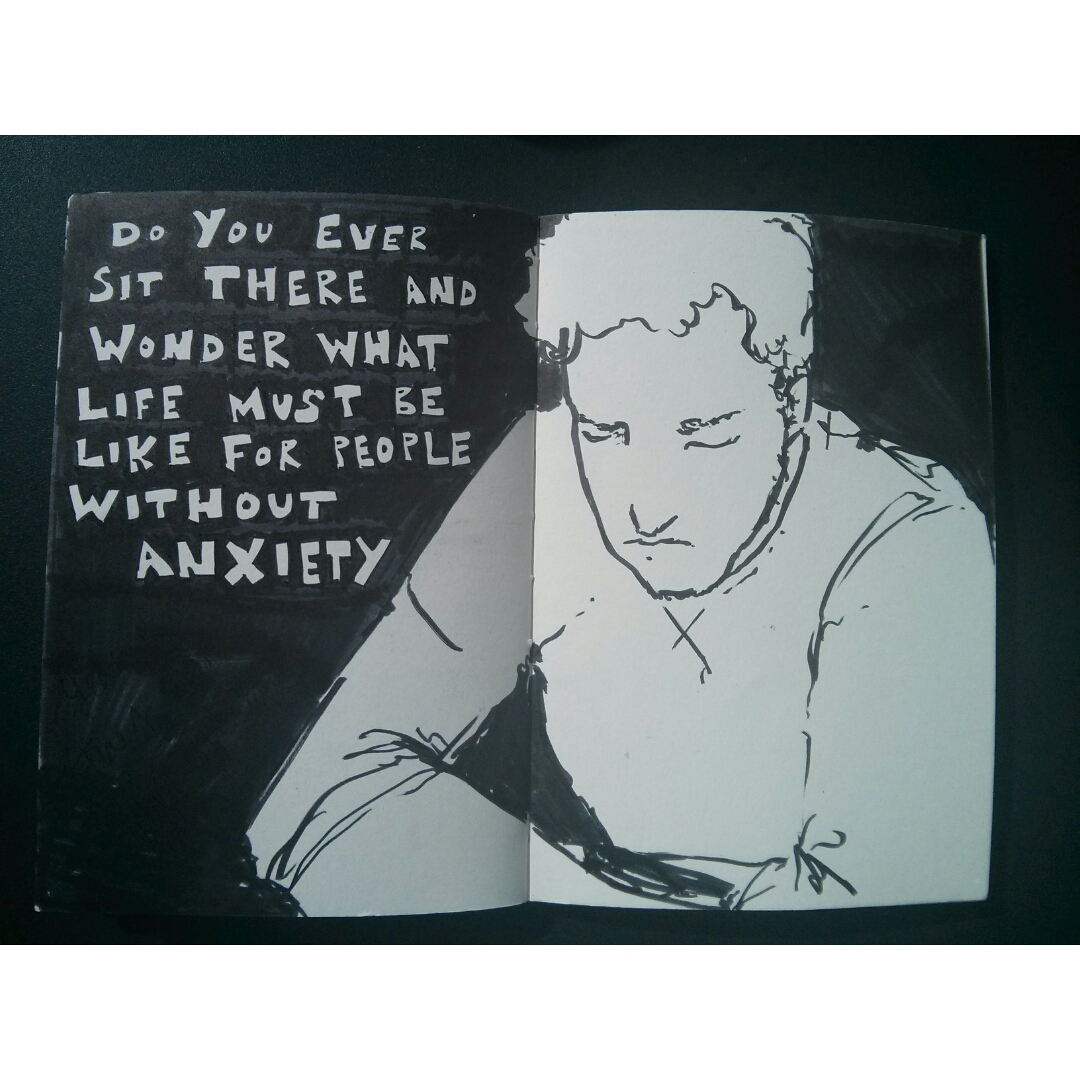 Do You EVER
SIT THERE AND
WONDER WHAT
LIFE MUST BE
LIKE FOR PEOPLE
WITHOUT
ANXIETY